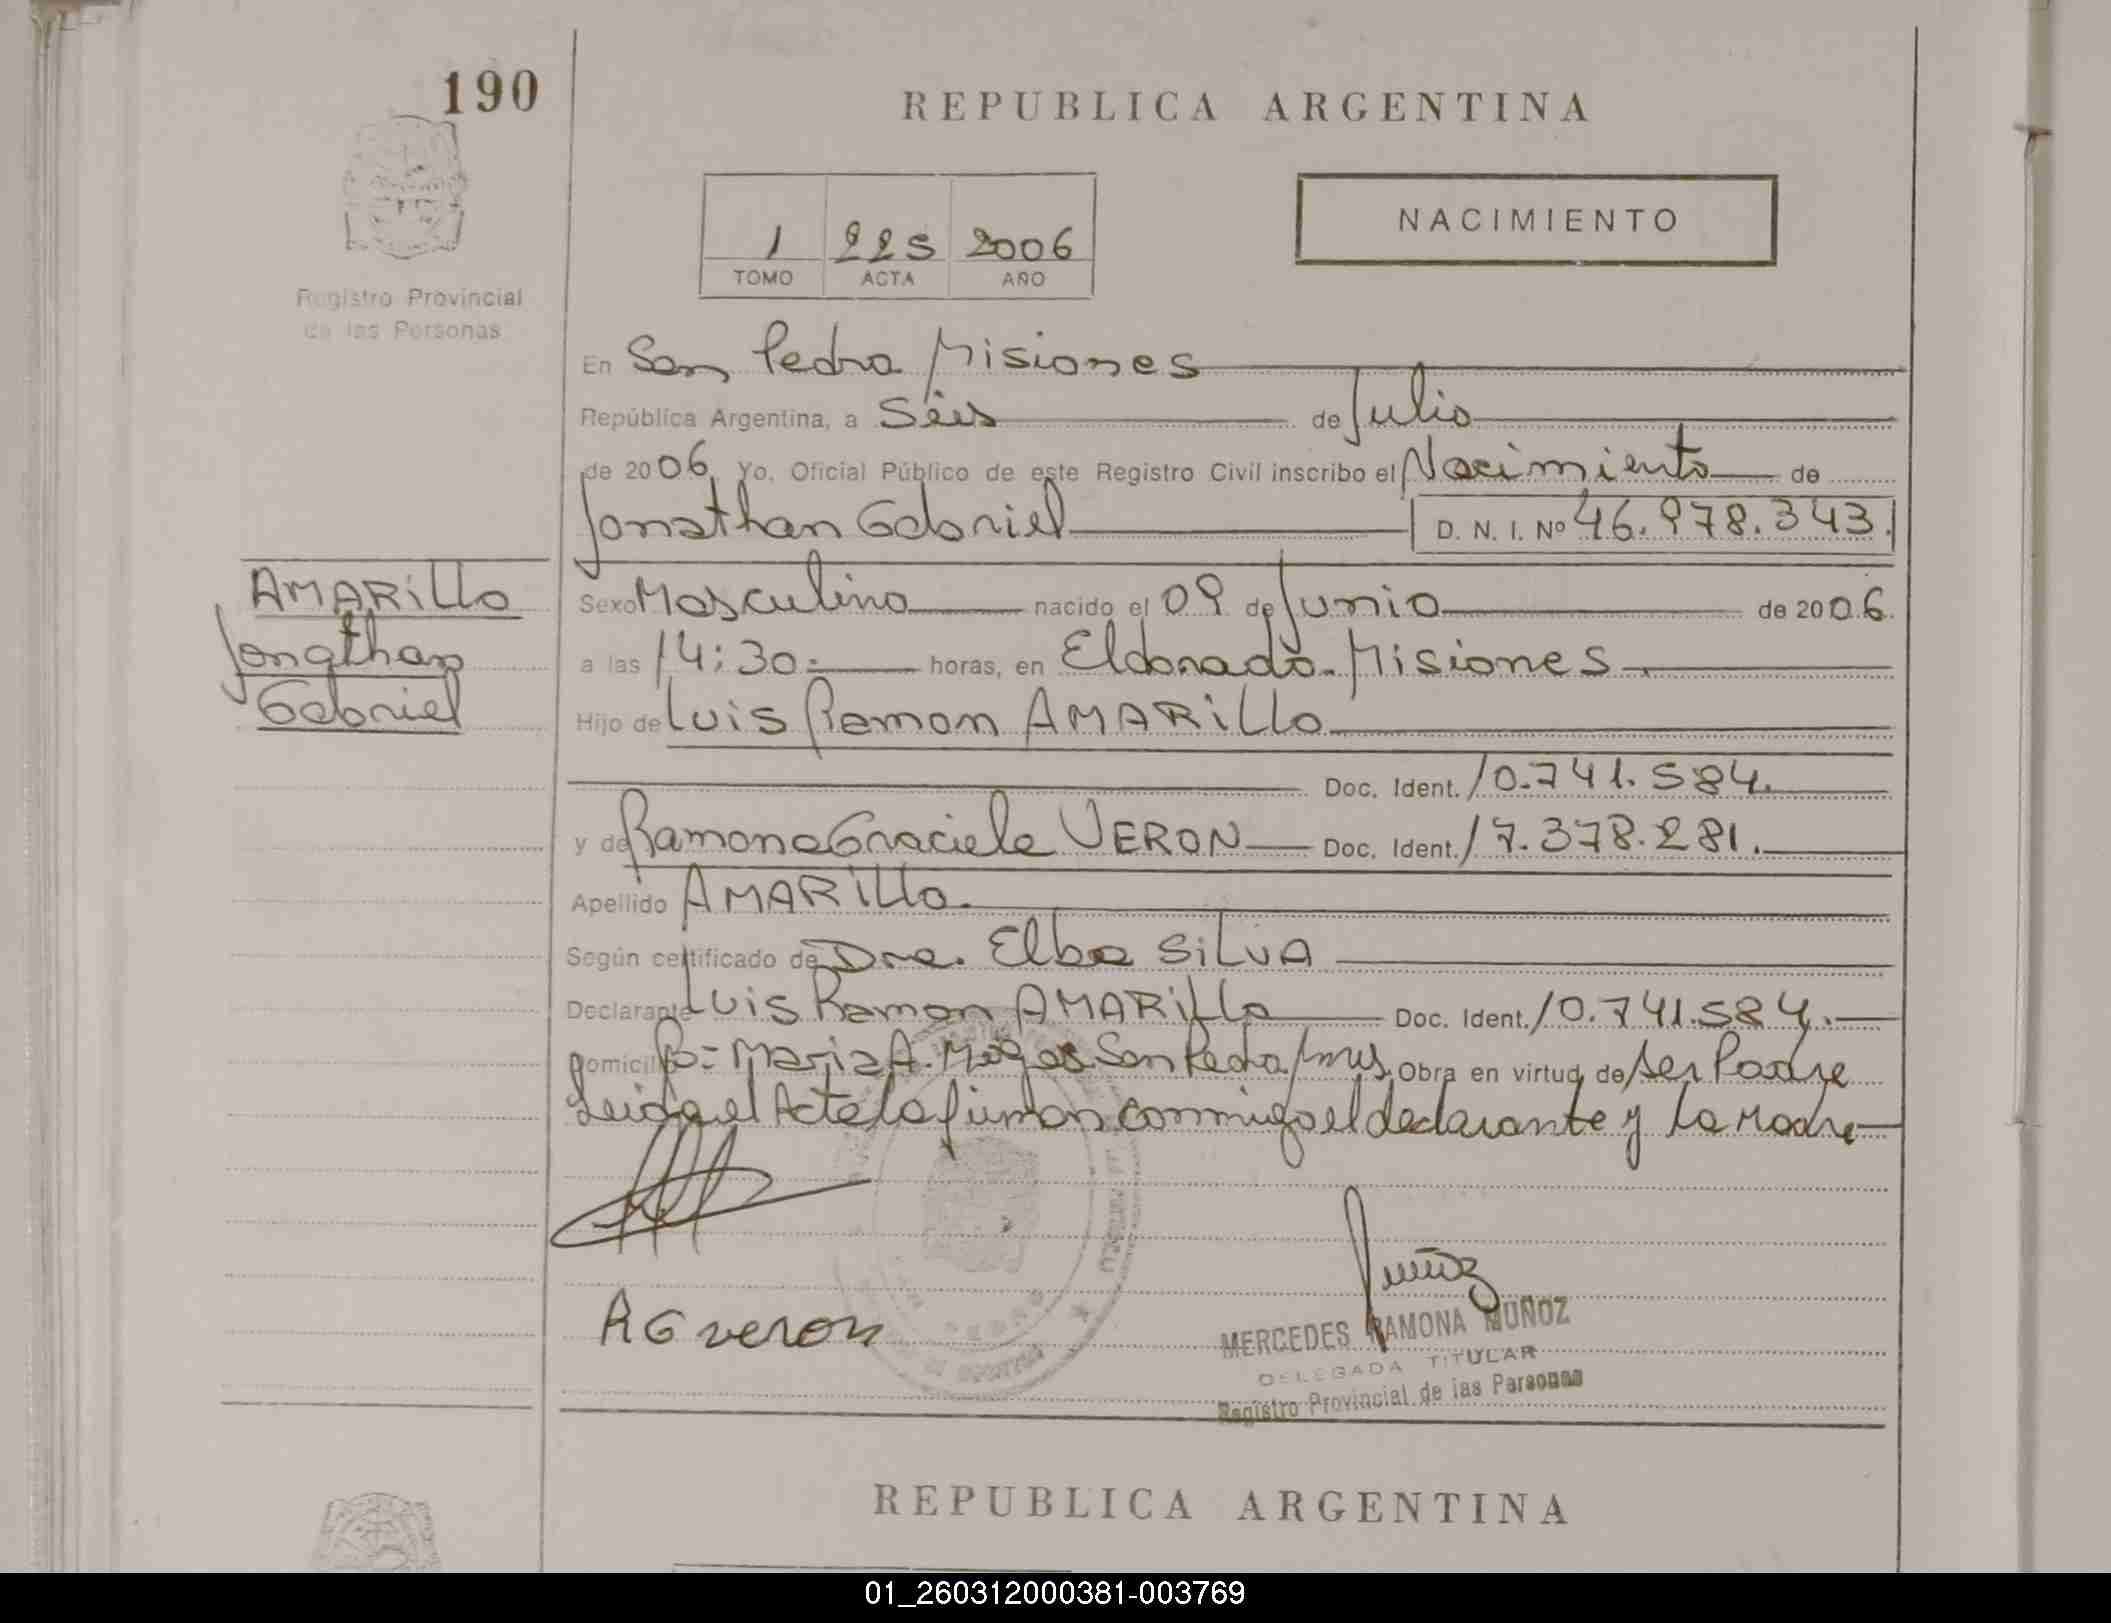 190
REPUBLICA ARGENTINA
1 225 2006
TOMO ACTA AÑO
NACIMIENTO
Registro Provincial
de las Personas
En San Pedro Misiones
República Argentina, a Séis de Julio
de 2006 Yo, Oficial Público de este Registro Civil inscribo el Nacimiento de
Jonathan Gabriel D. N. I. Nº 46.978.343.
AMARILLO
Jonathan
Gabriel
Sexo Masculino nacido el 09 de Junio de 2006.
a las 14:30 horas, en Eldorado. Misiones
Hijo de Luis Ramon AMARILLO
Doc. Ident. 10.741.584.
y de Ramona Graciela VERON Doc. Ident. 17.378.281.
Apellido AMARILLO.
Según certificado de Dra. Elba SILVA
Declarante Luis Ramon AMARILLO Doc. Ident. 10.741.584.
Domicilio San Pedro Obra en virtud de ser Padre
Leida el Acta la firman conmigo el declarante y la Madre
RG veron
Muñoz
MERCEDES RAMONA MUÑOZ
DELEGADA TITULAR
Registro Provincial de las Personas
REPUBLICA ARGENTINA
01_260312000381-003769